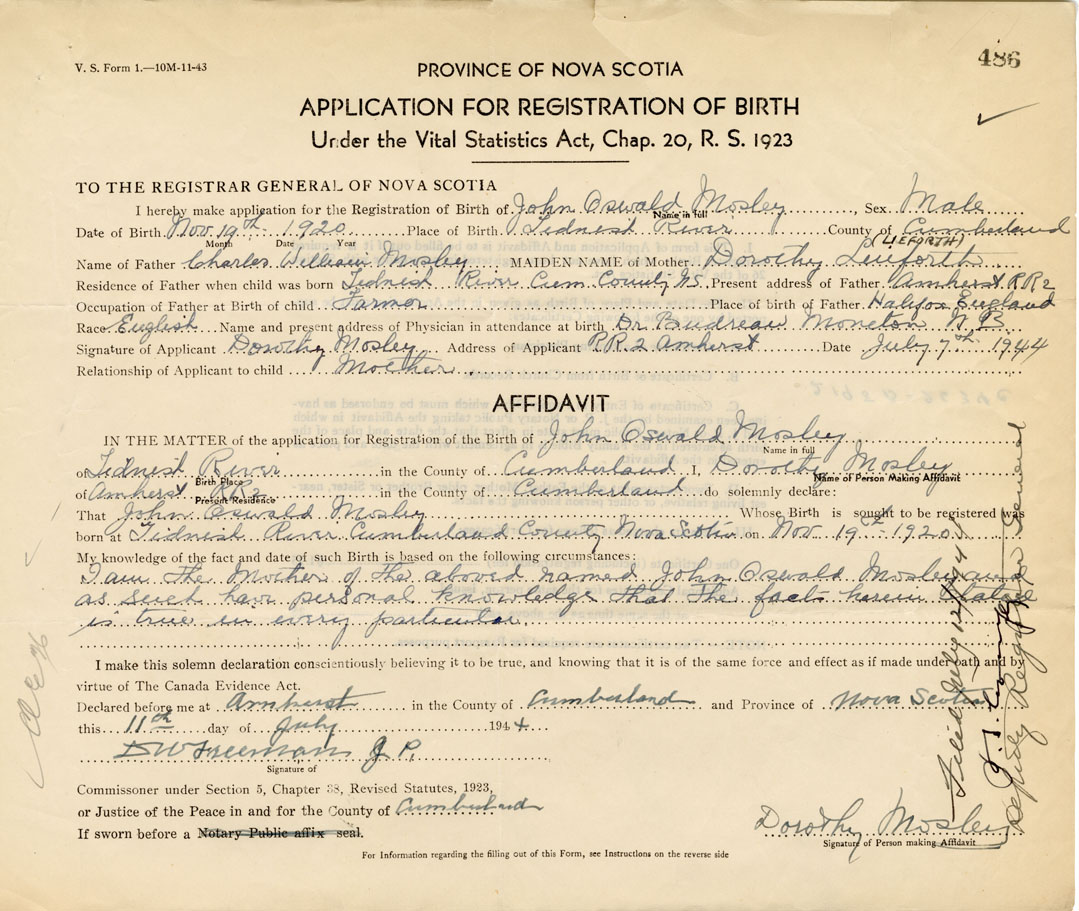 486
V. S. Form 1.—10M-11-43
PROVINCE OF NOVA SCOTIA
APPLICATION FOR REGISTRATION OF BIRTH
Under the Vital Statistics Act, Chap. 20, R. S. 1923
TO THE REGISTRAR GENERAL OF NOVA SCOTIA
I hereby make application for the Registration of Birth of John Oswald Mosley, Sex Male
Name in full
Date of Birth Nov. 19th 1920 Place of Birth Tidnish River County of Cumberland
Month Date Year
(LIEFORTH)
Name of Father Charles William Mosley MAIDEN NAME of Mother Dorothy Lieforth
Residence of Father when child was born Tidnish River Cum. County N.S. Present address of Father Amherst R R 2
Occupation of Father at Birth of child Farmer Place of Birth of Father Halifax England
Race English Name and present address of Physician in attendance at birth Dr. Budreau Moncton N. B
Signature of Applicant Dorothy Mosley Address of Applicant R.R. 2 Amherst Date July 7th 1944
Relationship of Applicant to child Mother
AFFIDAVIT
IN THE MATTER of the application for Registration of the Birth of John Oswald Mosley
Name in full
of Tidnish River in the County of Cumberland I, Dorothy Mosley
Birth Place Name of Person Making Affidavit
of Amherst RR 2 in the County of Cumberland do solemnly declare:
Present Residence
That John Oswald Mosley Whose Birth is sought to be registered was
born at Tidnish River Cumberland County Nova Scotia on Nov. 19th 1920
My knowledge of the fact and date of such Birth is based on the following circumstances:
I am the Mother of the aboved named John Oswald Mosley and
as such have personal knowledge that the facts herein stated
is true in every particular
I make this solemn declaration conscientiously believing it to be true, and knowing that it is of the same force and effect as if made under oath and by
virtue of The Canada Evidence Act.
Declared before me at Amherst in the County of Cumberland and Province of Nova Scotia
this 11th day of July 1944
D W Freeman J. P.
Signature of
Commissoner under Section 5, Chapter 38, Revised Statutes, 1923,
or Justice of the Peace in and for the County of Cumberland
If sworn before a Notary Public affix seal.
Dorothy Mosley
Signature of Person making Affidavit
For Information regarding the filling out of this Form, see Instructions on the reverse side
Filed July 12/1944
Deputy Registrar General